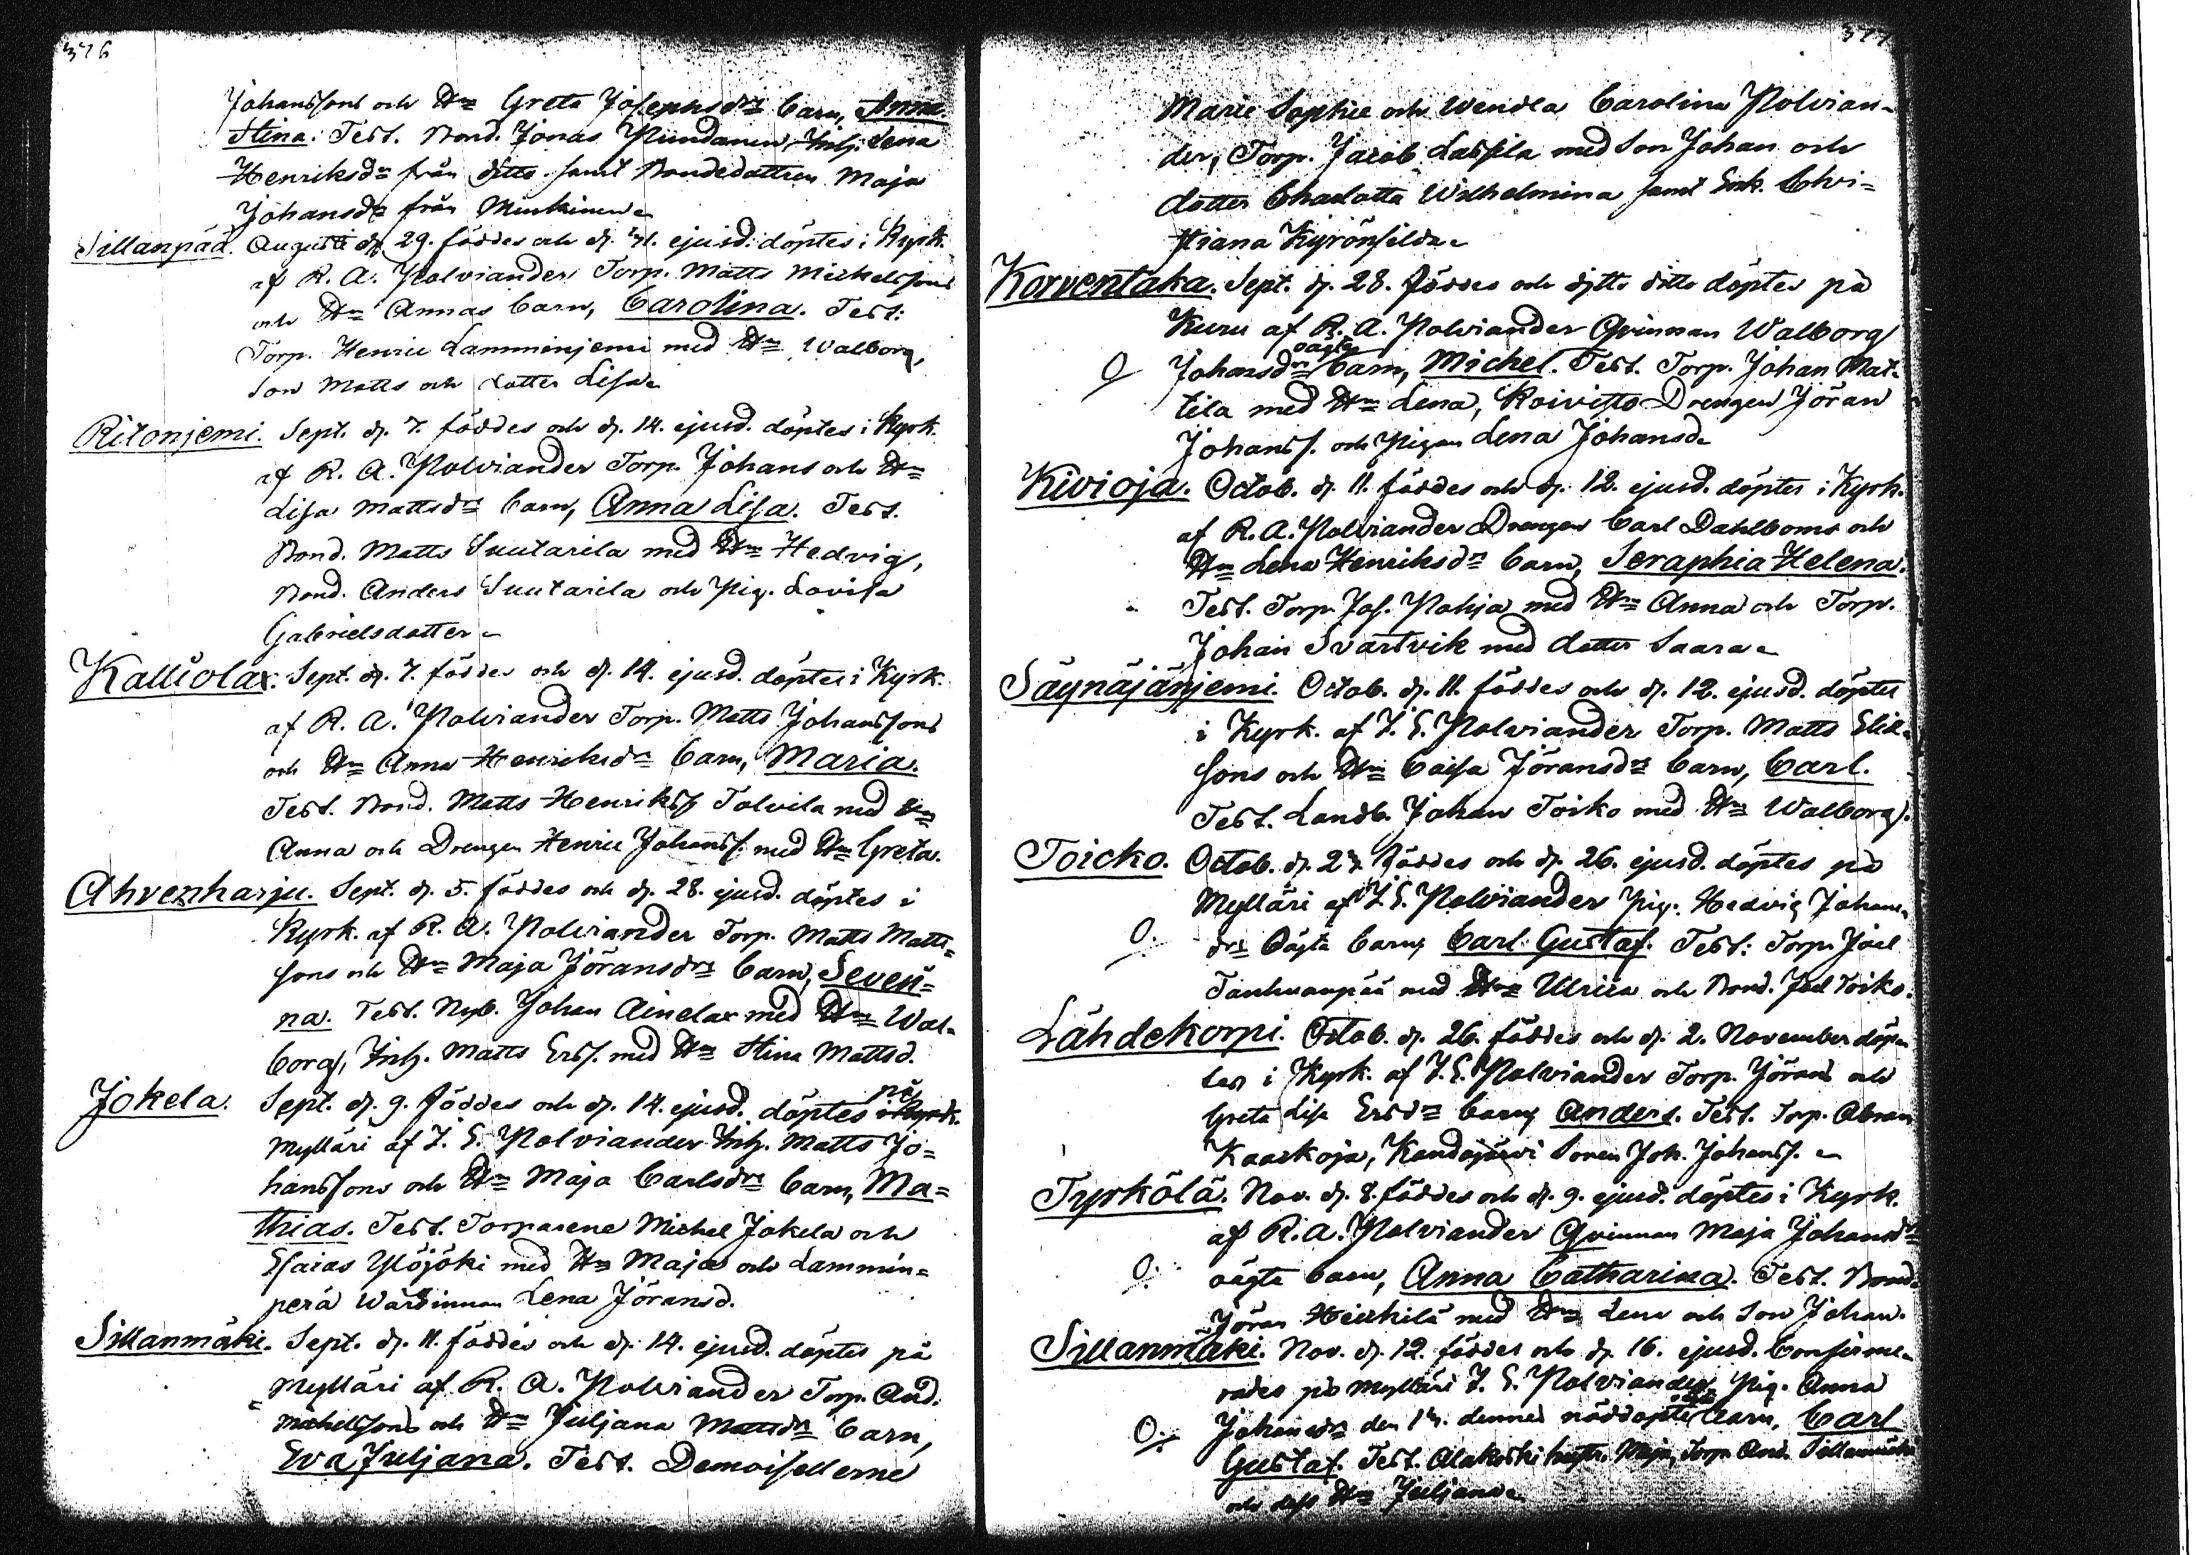 376
Johanssons och H:s Greta Josephsdrs barn, Anna
Stina. Test. Bond. Jonas Inh: Lena
Henriksdr från ditto samt Bondedottren Maja
Johansdr från
Sillanpää. Augusti d. 29. föddes och d. 31. ejusd. döptes i Kyrk.
af R. A. Polviander Torp. Matts Michelssons
och H:s Annas barn, Carolina. Test:
Torp. Henric Lamminjemi med H:s Walborg,
Son Matts och dotter Lisa
Ritonjemi. Sept. d. 7. föddes och d. 14. ejusd. döptes i Kyrk.
af R. A. Polviander Torp. Johans och H:s
Lisa Mattsdrs barn, Anna Lisa. Test.
Bond. Matts Suutarila med H:s Hedvig,
Bond. Anders Suutarila och Pig. Lovisa
Gabrielsdotter
Kalliolax. Sept. d. 7. föddes och d. 14. ejusd. döptes i Kyrk.
af R. A. Polviander Torp. Matts Johanssons
och H:s Anna Henriksdrs barn, Maria.
Test. Bond. Matts Henrikss. Tolvila med H:s
Anna och Drengen Henric Johanss. med H:s Greta.
Ahvenharju. Sept. d. 5. föddes och d. 28. ejusd. döptes i
Kyrk. af R. A. Polviander Torp. Matts Matts-
sons och H:s Maja Jöransdrs barn, Severi=
na. Test. Nyb. Johan Ainelax med H:s Wal-
borg, Inh. Matts Erss. med H:s Stina Mattsd.
Jokela. Sept. d. 9. föddes och d. 14. ejusd. döptes på
Mylläri af J. E. Polviander Inh. Matts Jo=
hanssons och H:s Maja Carlsdrs barn, Ma=
thias. Test. Torparene Michel Jokela och
Esaias Ylöjöki med H:s Maja och Lammin=
perä Wärdinnan Lena Jöransd.
Sillanmäki. Sept. d. 11. föddes och d. 14. ejusd. döptes på
Mylläri af R. A. Polviander Torp. And.
Michelssons och H:s Juljana Mattsdrs barn,
Eva Juljana. Test. Demoisellerne
377
Marie Sophie och Wendla Carolina Polvian-
der, Torp. Jacob Lassila med Son Johan och
dotter Charlotta Wilhelmina samt Enk. Chri=
stiana Kyrönsilda
Korventaka. Sept. d. 28. föddes och ditto ditto döptes på
Kuru af R. A. Polviander Qvinnan Walborg
O Johansdrs oägta barn, Michel. Test. Torp. Johan Mat-
tila med H:s Lena, Koivisto Drengen Jöran
Johanss. och Pigan Lena Johansd.
Kivioja. Octob. d. 11. föddes och d. 12. ejusd. döptes i Kyrk.
af R. A. Polviander Drengen Carl Dahlboms och
H:s Lena Henriksdrs barn, Seraphia Helena.
Test. Torp. Jos. Pohja med H:s Anna och Torp.
Johan Svartvik med dotter Saara
Säynäjänjemi. Octob. d. 11. föddes och d. 12. ejusd. döptes
i Kyrk. af J. E. Polviander Torp. Matts Elia-
sons och H:s Caisa Jöransdrs barn, Carl.
Test. Landb. Johan Toiko med H:s Walborg.
Toicko. Octob. d. 23. föddes och d. 26. ejusd. döptes på
Mylläri af J. E. Polviander Pig. Hedvig Johans-
O. drs Oägta barn, Carl Gustaf. Test: Torp. Joel
Tanhuanpää med H:s Ulrica och Bond. Joel Toiko.
Lähdekorpi. Octob. d. 26. föddes och d. 2. November döp-
tes i Kyrk. af J. E. Polviander Torp. Jörans och
Greta Lisa Ersdrs barn, Anders. Test. Torp. Abram
Kaarkoja, Kandojärvi Sonen Joh. Johanss.
Tyrkölä. Nov. d. 8. föddes och d. 9. ejusd. döptes i Kyrk.
af R. A. Polviander Qvinnan Maja Johansdrs
O. oägta barn, Anna Catharina. Test. Bond.
Jöran Heickilä med H:s Lena och Son Johan.
Sillanmäki. Nov. d. 12. föddes och d. 16. ejusd. Confirme-
rades på Mylläri J. E. Polviander Pig. Anna
O. Johansdrs den dennes nöddöpte barn, Carl
Gustaf. Test. Alakoski Maja, Torp. And. Sillanmäki
och dess H:s Juljana